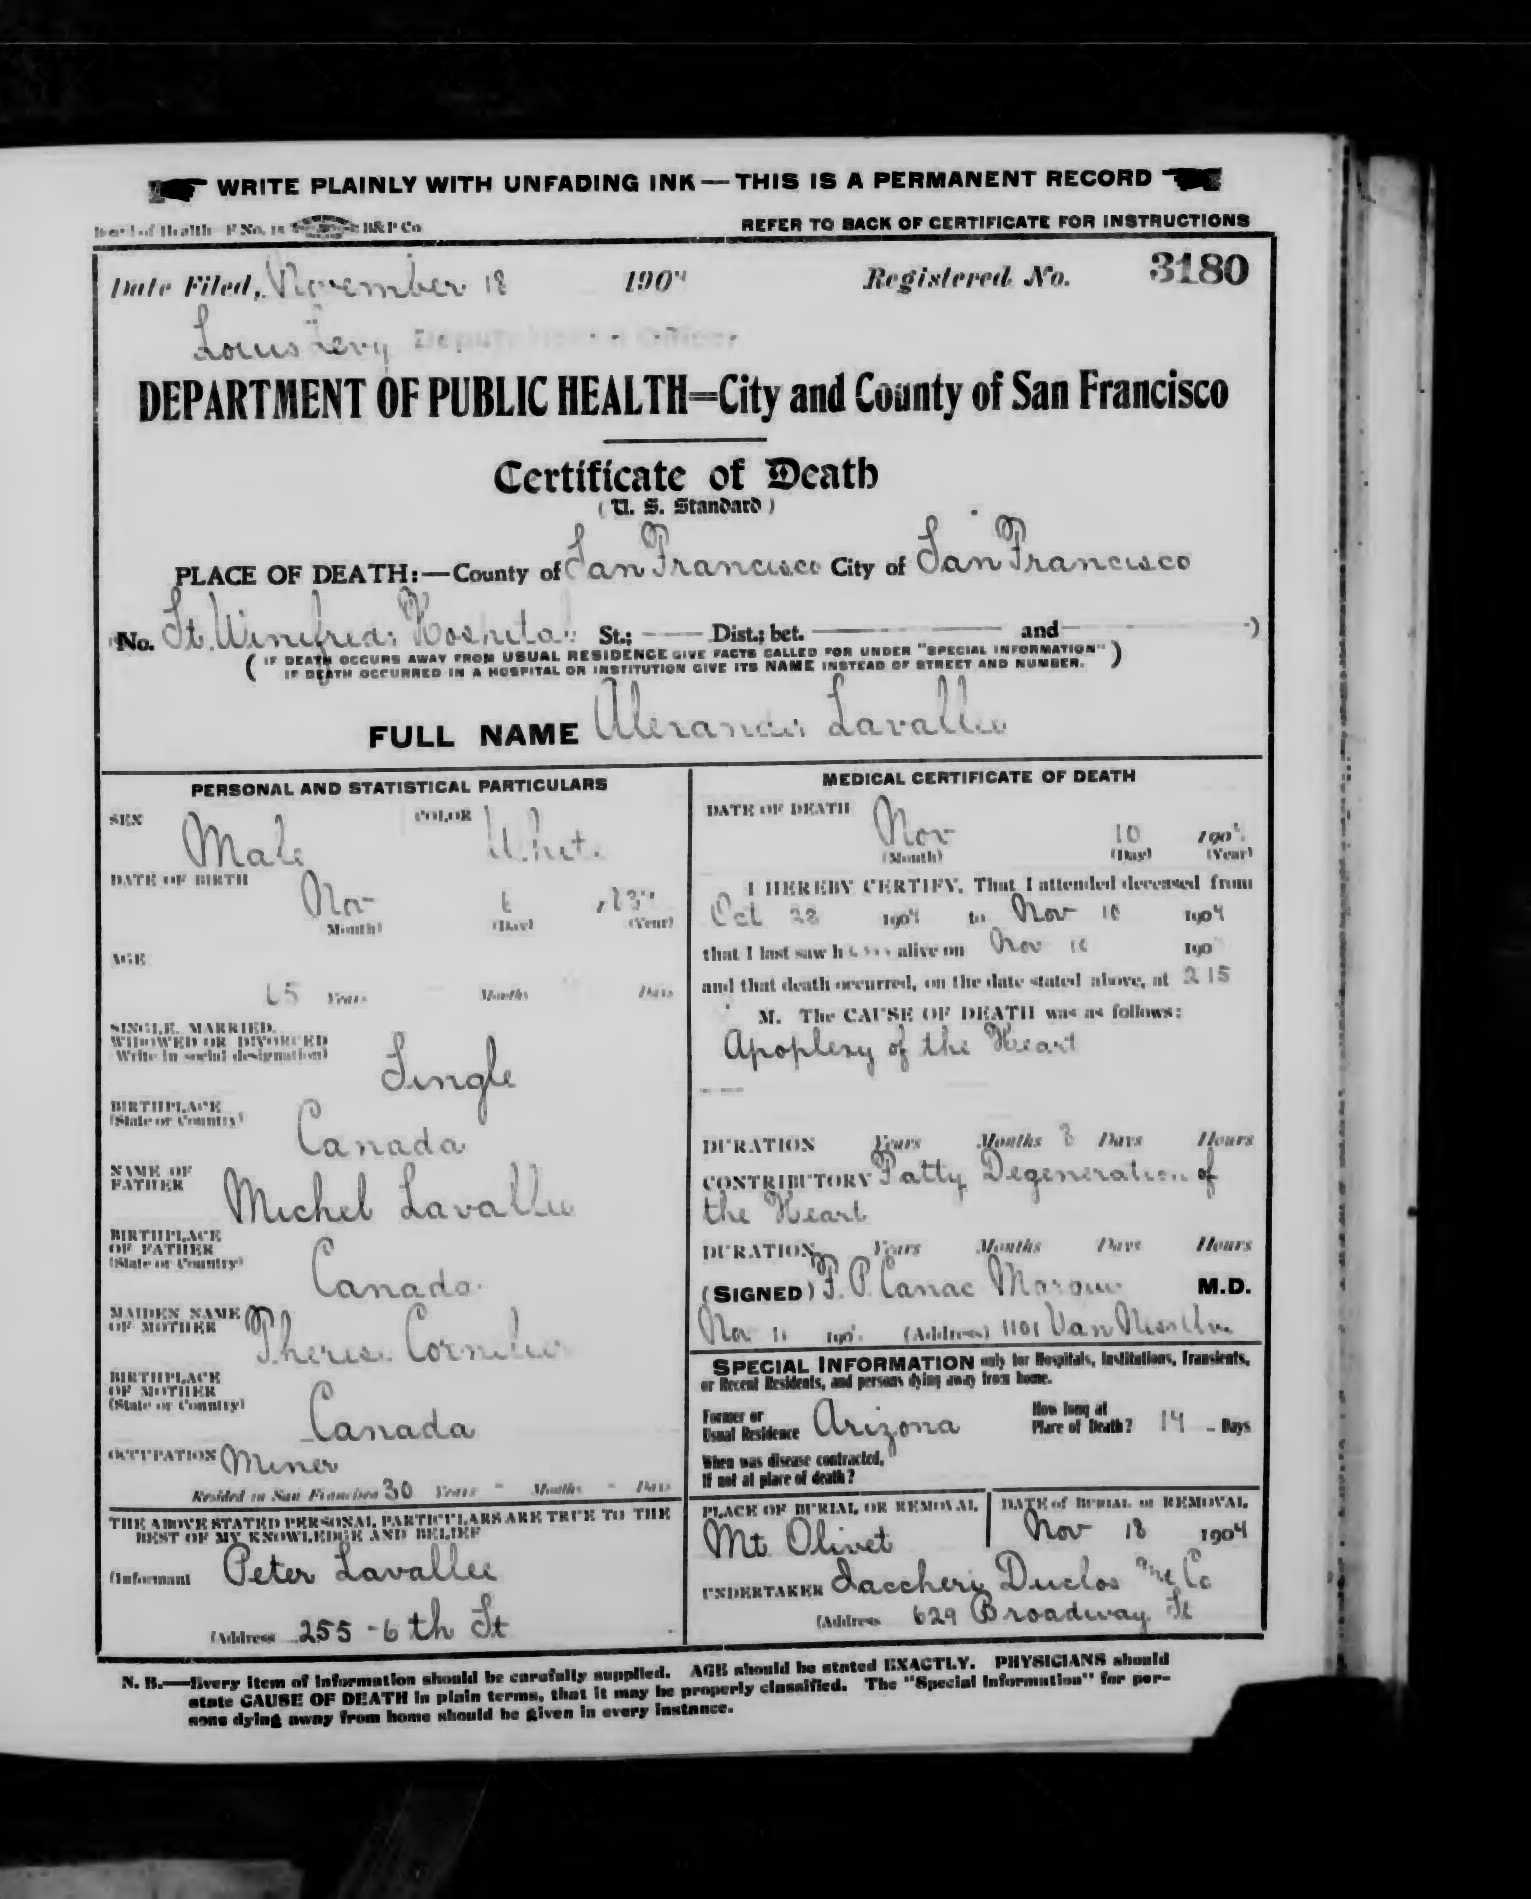 WRITE PLAINLY WITH UNFADING INK — THIS IS A PERMANENT RECORD
Board of Health F No. 18 B&P Co
REFER TO BACK OF CERTIFICATE FOR INSTRUCTIONS
Date Filed, November 18 1904 Registered No. 3180
Louis Levy Deputy Health Officer
DEPARTMENT OF PUBLIC HEALTH=City and County of San Francisco
Certificate of Death
( U. S. Standard )
PLACE OF DEATH:—County of San Francisco City of San Francisco
No. St. Winifreds Hospital St.; Dist.; bet. and )
( IF DEATH OCCURS AWAY FROM USUAL RESIDENCE GIVE FACTS CALLED FOR UNDER "SPECIAL INFORMATION"
IF DEATH OCCURRED IN A HOSPITAL OR INSTITUTION GIVE ITS NAME INSTEAD OF STREET AND NUMBER. )
FULL NAME Alexander Lavallee
PERSONAL AND STATISTICAL PARTICULARS
SEX Male COLOR White
DATE OF BIRTH Nov 6
(Month) (Day) (Year)
AGE
65 Years Months Days
SINGLE, MARRIED,
WIDOWED OR DIVORCED
(Write in social designation) Single
BIRTHPLACE
(State or Country) Canada
NAME OF
FATHER Michel Lavallee
BIRTHPLACE
OF FATHER
(State or Country) Canada
MAIDEN NAME
OF MOTHER Therese
BIRTHPLACE
OF MOTHER
(State or Country) Canada
OCCUPATION Miner
Resided in San Francisco 30 Years - Months - Days
THE ABOVE STATED PERSONAL PARTICULARS ARE TRUE TO THE
BEST OF MY KNOWLEDGE AND BELIEF
(Informant Peter Lavallee
(Address 255 - 6th St
MEDICAL CERTIFICATE OF DEATH
DATE OF DEATH Nov 10 1904
(Month) (Day) (Year)
I HEREBY CERTIFY, That I attended deceased from
Oct 28 1904 to Nov 10 1904
that I last saw him alive on Nov 10 190
and that death occurred, on the date stated above, at 2 15
M. The CAUSE OF DEATH was as follows:
Apoplexy of the Heart
DURATION Years Months 8 Days Hours
CONTRIBUTORY Fatty Degeneration of
the Heart
DURATION Years Months Days Hours
(SIGNED) F. P. Canac Marquis M.D.
Nov 11 190 (Address) 1101 Van Ness Ave
SPECIAL INFORMATION only for Hospitals, Institutions, Transients,
or Recent Residents, and persons dying away from home.
Former or
Usual Residence Arizona
How long at
Place of Death? 14 - Days
When was disease contracted,
If not at place of death?
PLACE OF BURIAL OR REMOVAL
Mt Olivet
DATE of BURIAL or REMOVAL
Nov 18 1904
UNDERTAKER Iaccheri Duclos and Co
(Address 629 Broadway St
N. B.—Every item of information should be carefully supplied. AGE should be stated EXACTLY. PHYSICIANS should
state CAUSE OF DEATH in plain terms, that it may be properly classified. The "Special Information" for per-
sons dying away from home should be given in every instance.